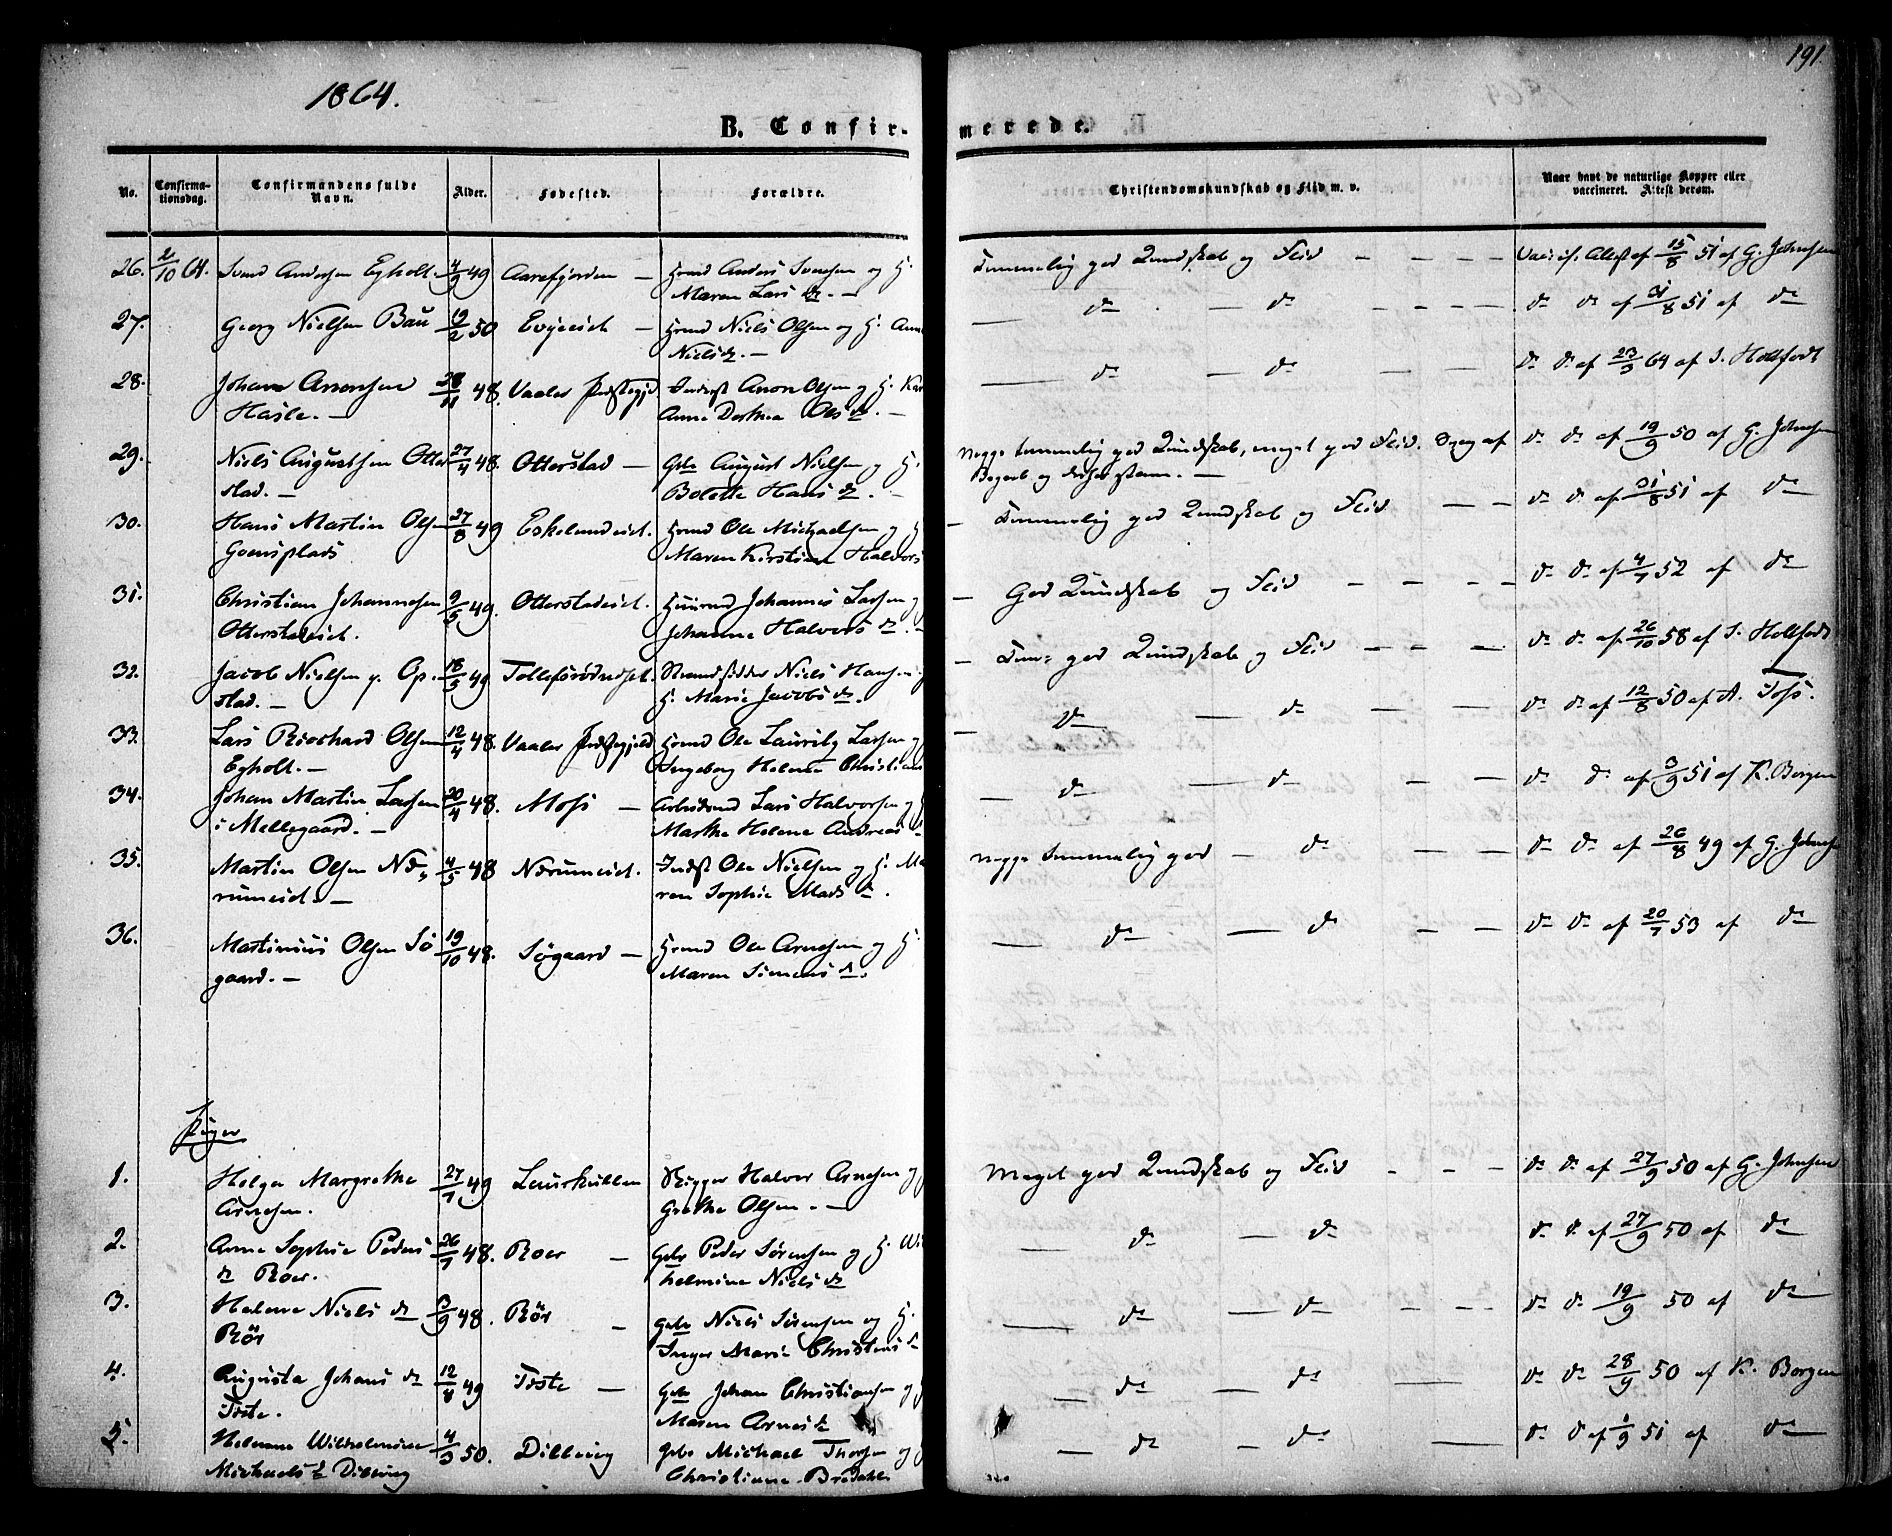 191.
1864.
B. Confirmerede.
No. Confirmationsdag. Confirmandens fulde Navn. Alder. Fødested. Forældre. Christendomskundskab og Flid m. v. Naar havt de naturlige Kopper eller vaccineret. Attest derom.
26. 2/10 64. Svend Andersen Egholt. 4/9 49 Aarefjorden — Grmd Anders Svensen og H. Temmelig god Kundskab og Flid — — — Vacc. if. Attest af 15/8 51 af G. Johnsen
Maren Lars dr. —
27. Georg Nielsen Bau 19/2 50 Evjeeid — Grmd Niels Olsen og H. — do — do — — — do do af 31/8 51 af do
Niels dr. —
28. Johan Arnesen 28/11 48. Vaaler Præstegjd Inderst Aron Olsen og H. — do — do — — do do af 23/9 64 af S. Hollfodt
Hasle. — Anne Dorthea Ols dr. —
29. Niels Augustsen Otter 27/4 48. Otterstad — Gbr August Nielsen og H. Nogge temmelig god Kundskab, meget god Flid. Svag af do do af 19/9 50 af G. Johnsen
stad. — Bolette Hans dr. — Begreb og
30. Hans Martin Olsen 27/8 49 Eskelundeid. Grmd Ole Michaelsen og H — Temmelig god Kundskab og Flid — — do do af 31/8 51 af do
Goensplads Maren Kirstine Halvors
31. Christian Johannesen 9/5 49. Otterstadeid. Huusmd Johannes Larsen og — God Kundskab og Flid — — — do do af 4/7 52 af do
Otterstadeid. Johanne Halvors dr. —
32. Jacob Nielsen Op. 18/5 49 Tollefsrødødeg. Strandsidder Niels Hansen — Tem= god Kundskab og Flid — — — do do af 26/10 58 af S. Hollfodt
stad. — H. Marie Jacobs dr.
33. Lars Richard Olsen 12/4 48. Vaaler Præstegjeld Grmd Ole Lauritz Larsen og — do — do — — do do af 12/8 50 af A. Toss.
Egholt. — Ingeborg Helene Christians
34. Johan Martin Larsen 20/4 48. Moss — Arbeidsmd Lars Halvorsen og H — do — do — — do do af 3/9 51 af K. Borgen
i Mellegaard. — Marthe Helene Andreas
35. Martin Olsen Næ= 4/5 48 Nærumeid. Indst Ole Nielsen og H. Ma Nogge temmelig god — do — — do do af 26/8 49 af G. Johnsen
rumeid. — ren Sophie Mads dr.
36. Martinius Olsen Sø 19/10 48. Søgaard — Grmd Ole Arnesen og H. — do — do — — do do af 20/7 53 af do
gaard. — Maren Simens dr.
Piger
1. Helga Margrethe 27/7 49 Laurkullen Skipper Halvor Arnesen og Meget god Kundskab og Flid — — — do do af 27/9 50 af G. Johnsen
Arnesen. Grethe Olsen. —
2. Anne Sophie Peders 26/7 48. Roer — Gbr Peder Sørensen og H. Wi — do — do do do af 27/9 50 af do
dr Roer. helmine Niels dr
3. Helene Niels dr 3/9 48. Rör — Gbr Niels Sørensen og H. — do — do — — — do do 19/9 50 af do
Rör Inger Marie Christens dr
4. Augusta Johans dr 12/8 49 Toste — Gbr Johan Christiansen og H — do — do — do do 28/9 50 af K. Borgen
Toste. Maren Arnes dr
5. Helene Wilhelmine 4/3 50. Dilling Gbr Michael Thorsen og — do — do — do do af 1/9 51 af do
Michaels dr Dilling Christiane Bredahl